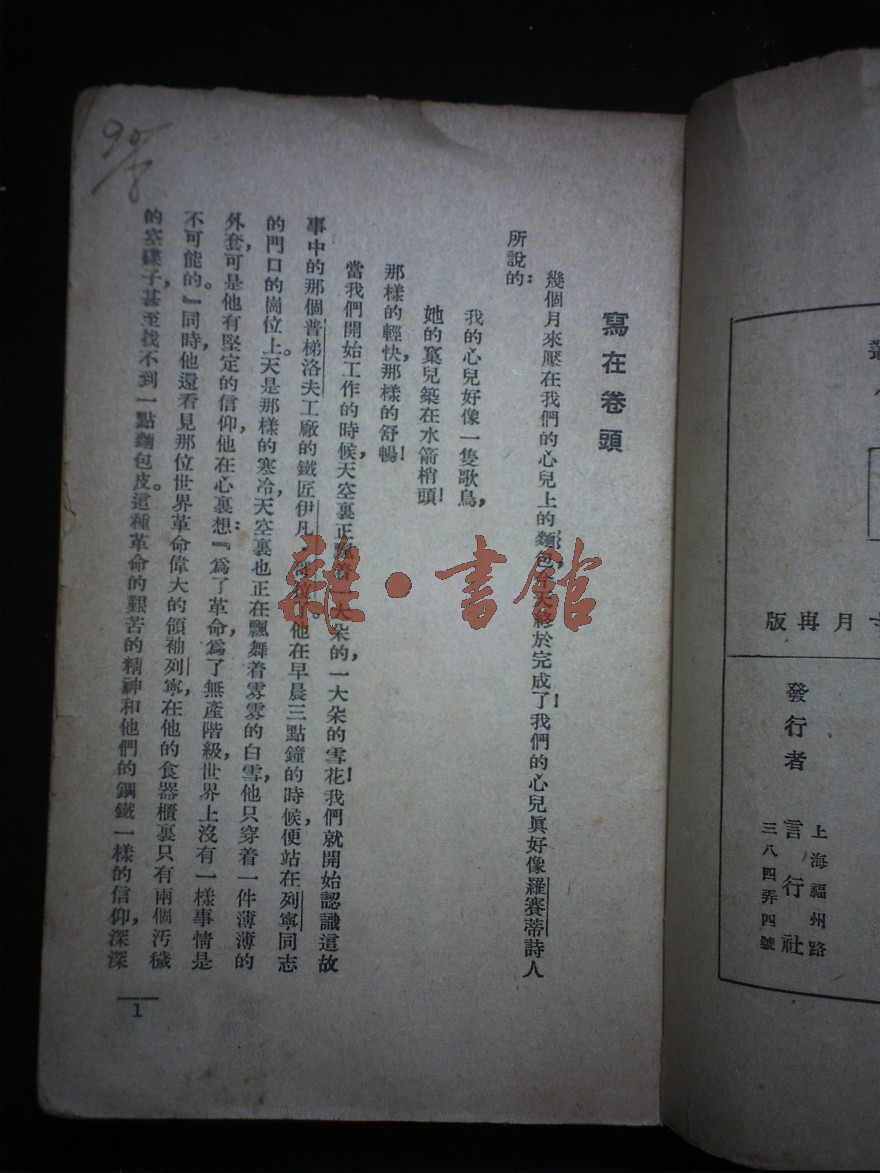 寫在卷頭
幾個月來壓在我們的心兒上的『麵包
終於完成了!我們的心兒眞好像羅賽蒂詩人
所說的:
我的心兒好像一隻歌鳥,
她的窠兒築在水箭梢頭!
那樣的輕快那樣的舒暢!
當我們開始工作的時候,天空裏正飄着一大朵的,一大朵的雪花!我們就開始認識這故
事中的那個普梯洛夫工廠的鐵匠伊凡
他在早晨三點鐘的時候,便站在列寧同志
的門口的崗位上。天是那樣的寒冷,天空裏也正在飄舞着雰雰的白雪,他只穿着一件薄薄的
外套,可是他有堅定的信仰他在心裏想:『爲了革命,爲了無產階級,世界上沒有一樣事情是
不可能的。』同時,他還看見那位世界革命偉大的領袖列寧,在他的食器櫃裏只有兩個汚穢
的空碟子,甚至找不到一點麵包皮。這種革命的艱苦的精神和他們的鋼鐵一樣的信仰,深深
1
90
雜·書館
叢
月再版
發行者
言行社
上海福州路
三八四弄四號